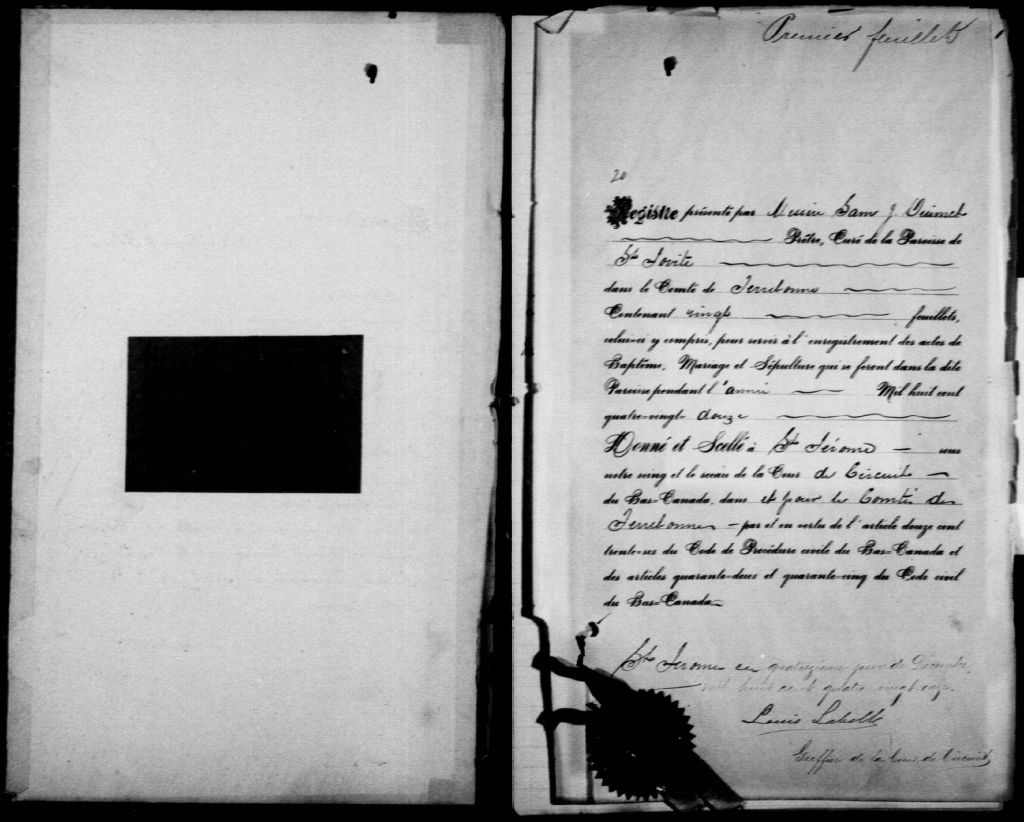 Premier feuillet
20
Registre présenté par Messire Sam J Ouimet
Prêtre, Curé de la Paroisse de
St Jovite
dans le Comté de Terrebonne
Contenant vingt feuillets,
celui-ci y compris, pour servir à l'enregistrement des actes de
Baptême, Mariage et Sépulture qui se feront dans la dite
Paroisse pendant l'année Mil huit cent
quatre-vingt douze
Donné et Scellé à St Jérome — sous
notre seing et le sceau de la Cour de Circuit —
du Bas-Canada, dans et pour le Comté de
Terrebonne — par et en vertu de l'article douze cent
trente-six du Code de Procédure civile du Bas-Canada et
des articles quarante-deux et quarante-cinq du Code civil
du Bas-Canada
St Jerome ce quatorzieme jour de Décembre
mil huit cent quatre vingt onze.
Louis Labelle
Greffier de la Cour de Circuit